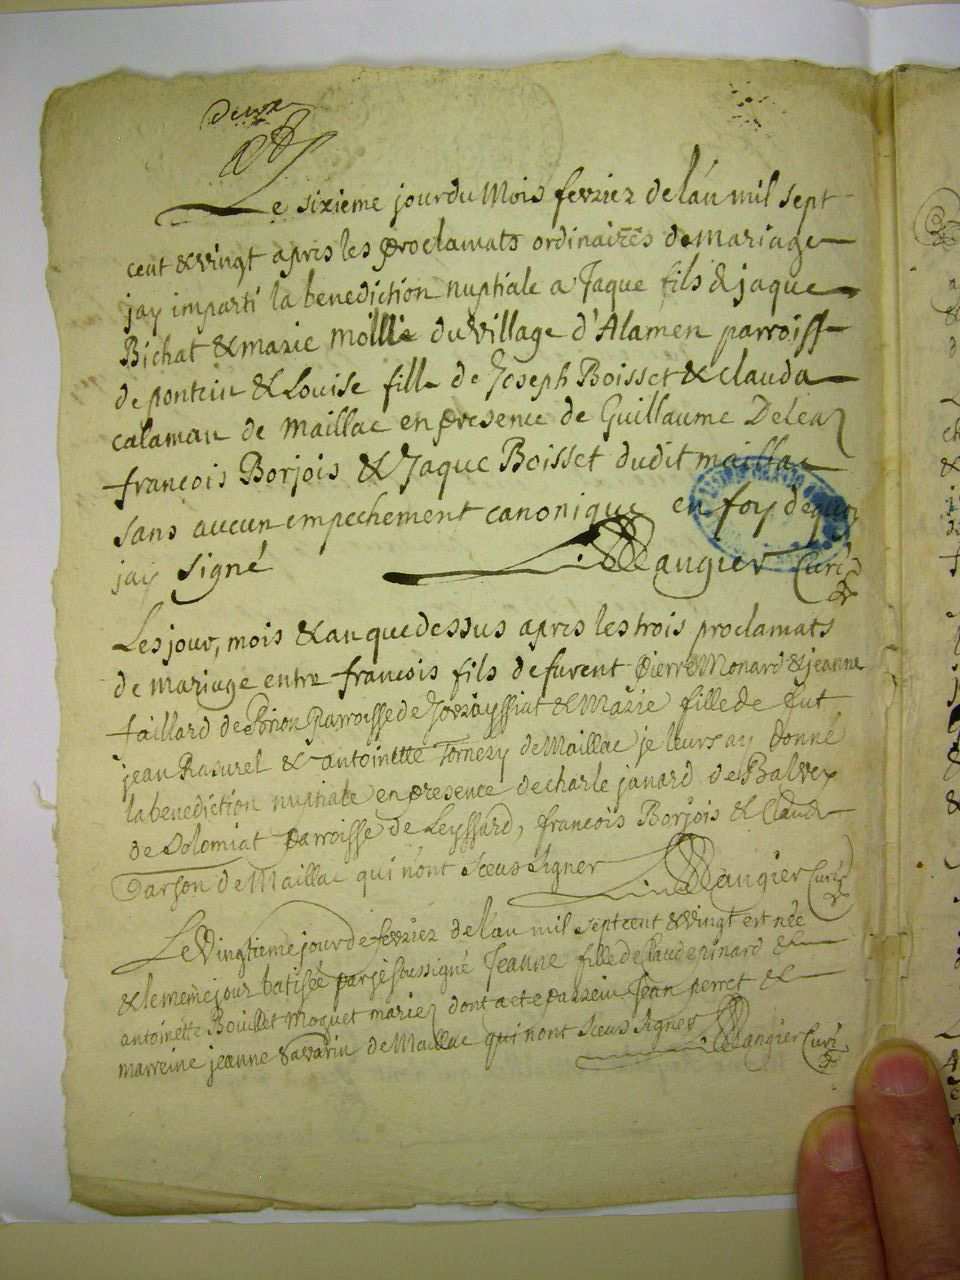 deux
Le sixieme jour du Mois fevrier de l'an mil sept
cent & vingt apres les proclamats ordinaires de mariage
jay imparti la benediction nuptiale a Jaque fils de jaque
Bichat & marie mollie du village d'Alamen parroisse
de poncin & Louise fille de Joseph Boisset & clauda
calaman de maillac en presence de Guillaume
françois Borjois & Jaque Boisset dudit maillac
sans aucun empechement canonique en foy dequoy
jay signé Maugier Curé
Les jour, mois & an que dessus apres les trois proclamats
de mariage entre françois fils de furent pierre Monard & jeanne
taillard de Brion Parroisse de & Marie fille de fut
jean Rasurel & antoinette Tornery de Maillac je leurs ay donné
la benediction nuptiale en presence de charle janard de Balvey
de Solomiat parroisse de Leyssard, françois Borjois & Claude
Tarson de Maillac qui n'ont sceus signer Maugier Curé
Le Vingtieme jour de fevrier de l'an mil sept cent & vingt est née
& le meme jour batisée par je soussigné Jeanne fille de &
antoinette Bouillet Moguet mariez dont a eté parrein jean perret &
marreine jeanne Savarin de Maillac qui nont sceus signer Maugier Curé